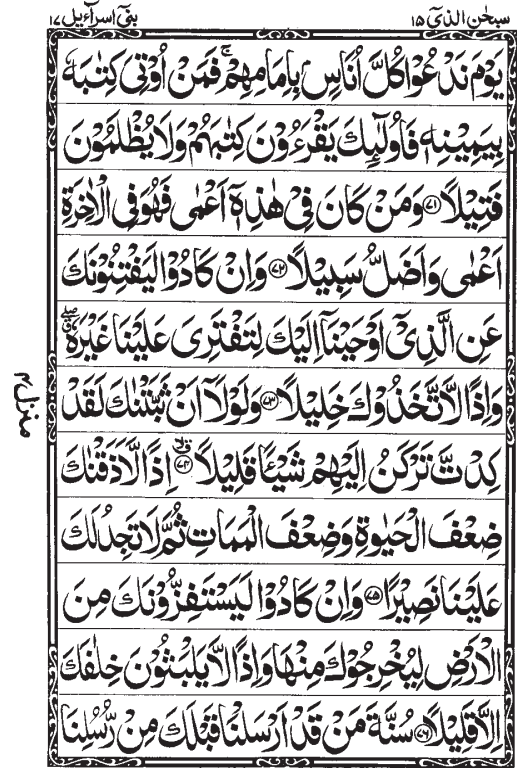 سبحٰن الذیۤ ۱۵
بنیۤ اسرآءیل ۱۷
یَوْمَ نَدْعُوْا كُلَّ اُنَاسٍۭ بِاِمَامِهِمْ ۚ فَمَنْ اُوْتِیَ كِتٰبَهٗ
بِیَمِیْنِهٖ فَاُولٰٓىِٕكَ یَقْرَءُوْنَ كِتٰبَهُمْ وَلَا یُظْلَمُوْنَ
فَتِیْلًا ۷۱ وَمَنْ كَانَ فِیْ هٰذِهٖۤ اَعْمٰی فَهُوَ فِی الْاٰخِرَةِ
اَعْمٰی وَاَضَلُّ سَبِیْلًا ۷۲ وَاِنْ كَادُوْا لَیَفْتِنُوْنَكَ
عَنِ الَّذِیْۤ اَوْحَیْنَاۤ اِلَیْكَ لِتَفْتَرِیَ عَلَیْنَا غَیْرَهٗ ۖق
وَاِذًا لَّاتَّخَذُوْكَ خَلِیْلًا ۷۳ وَلَوْلَاۤ اَنْ ثَبَّتْنٰكَ لَقَدْ
كِدْتَّ تَرْكَنُ اِلَیْهِمْ شَیْـًٔا قَلِیْلًا ۷۴ۗۙ اِذًا لَّاَذَقْنٰكَ
ضِعْفَ الْحَیٰوةِ وَضِعْفَ الْمَمَاتِ ثُمَّ لَا تَجِدُ لَكَ
عَلَیْنَا نَصِیْرًا ۷۵ وَاِنْ كَادُوْا لَیَسْتَفِزُّوْنَكَ مِنَ
الْاَرْضِ لِیُخْرِجُوْكَ مِنْهَا وَاِذًا لَّا یَلْبَثُوْنَ خِلٰفَكَ
اِلَّا قَلِیْلًا ۷۶ سُنَّةَ مَنْ قَدْ اَرْسَلْنَا قَبْلَكَ مِنْ رُّسُلِنَا
منزل ۴